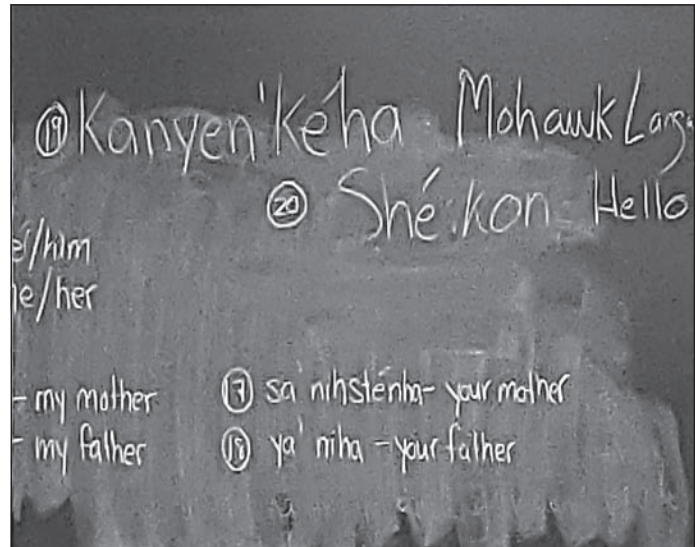 ⑲ Kanyen'kéha Mohawk Lang.
⑳ Shé:kon Hello
e/him
e/her
- my mother ⑰ sa'nihsténha- your mother
- my father ⑱ ya'niha - your father